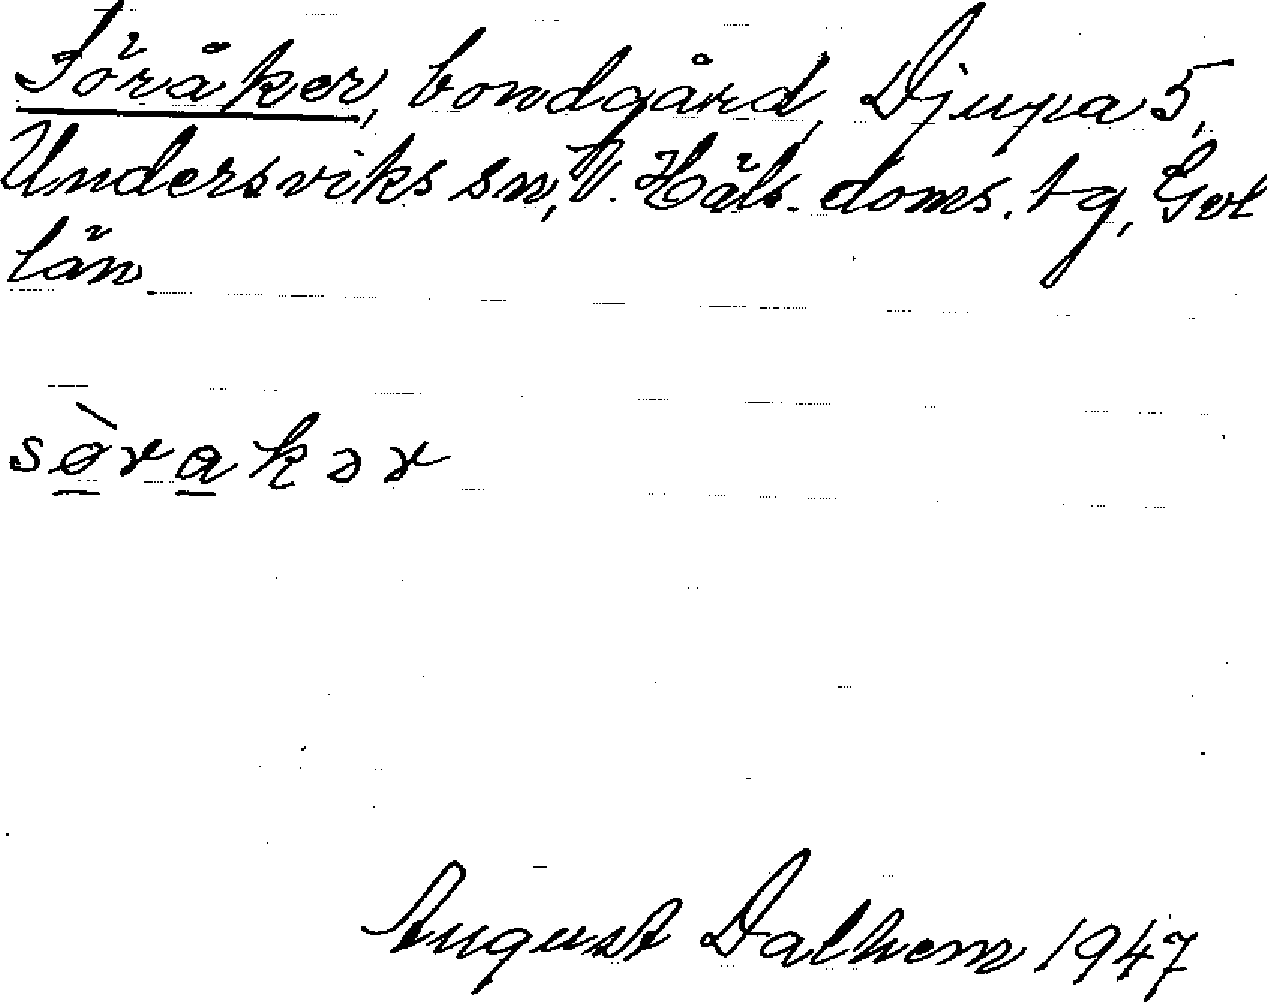 Söråker, bondgård, Djupa 5,
Undersviks sn, V. Häls. doms. tg, Gvl
län
sö̀rakər
August Dalhem 1947